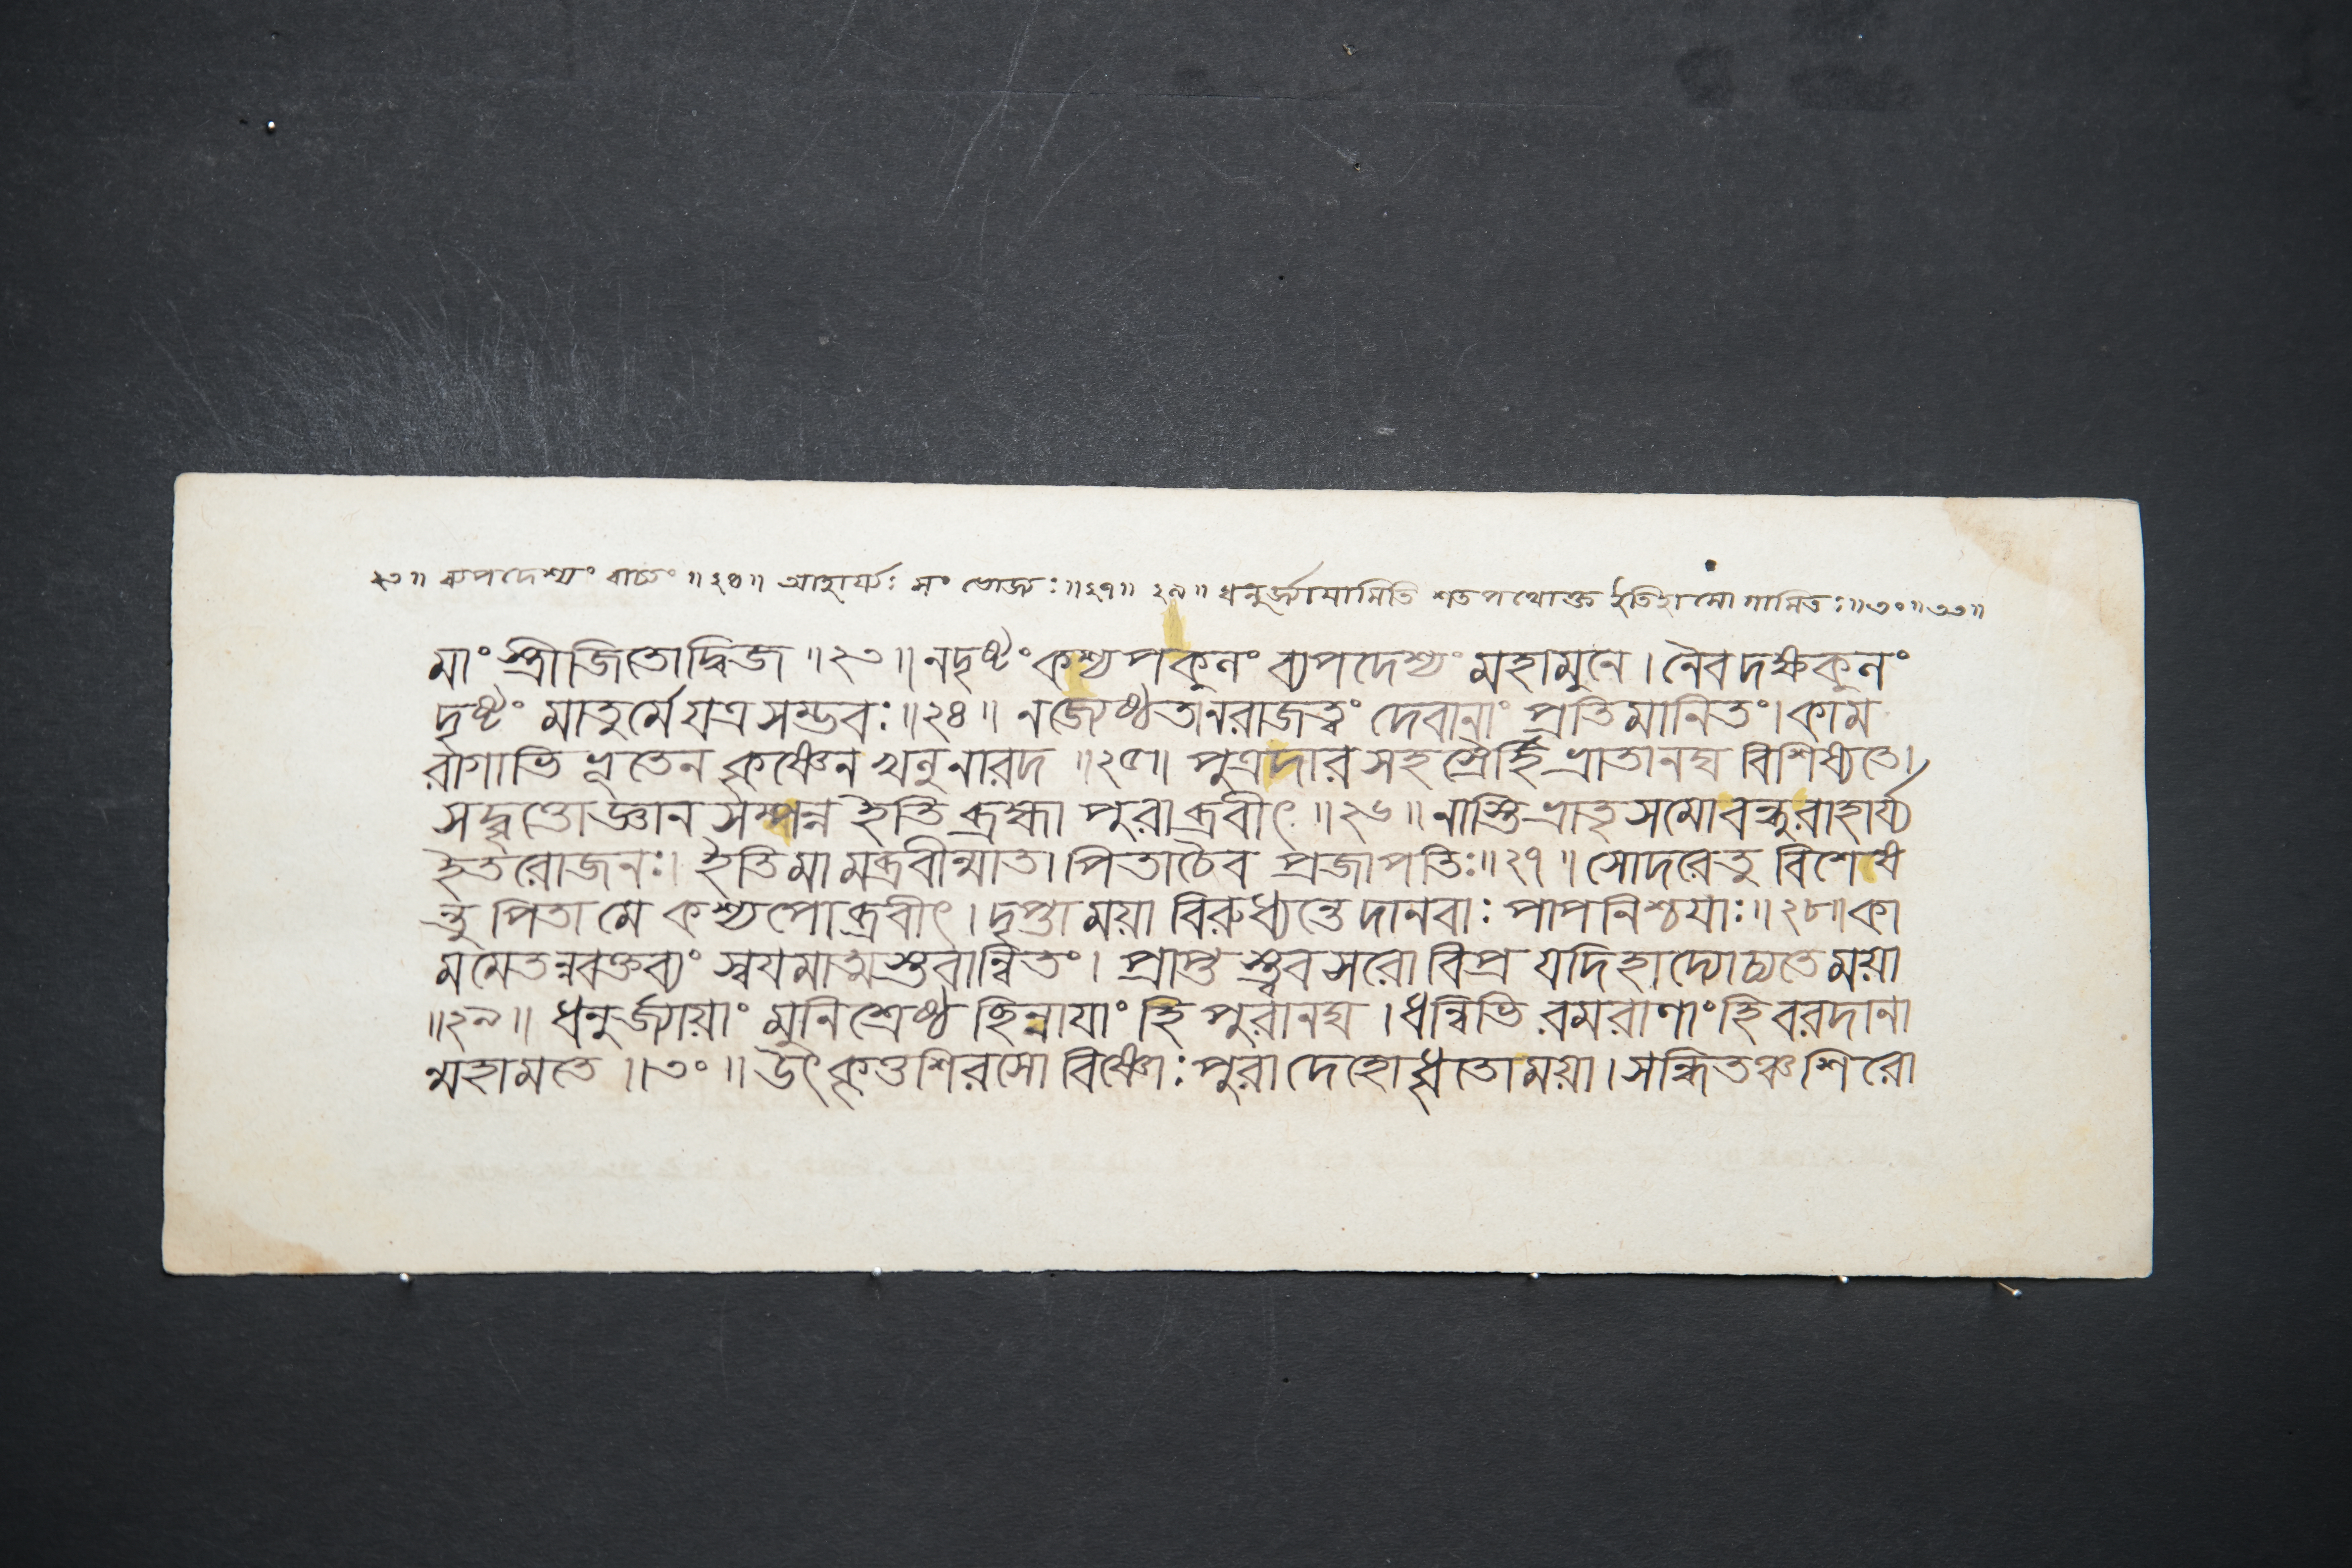 ২৩॥ ব্যপদেশ্যং বাচ্যং ॥২৪॥ আহার্য্যঃ সং ভোজ্যঃ॥২৭॥ ২৯॥ ধনুর্জ্যায়ামিতি শতপথোক্ত ইতিহাসো গামিতঃ॥৩০॥৩৩॥
মাং স্ত্রীজিতোদ্বিজ ॥২৩॥ নদৃষ্টং কশ্যপকুলং ব্যপদেশ্যং মহামুনে। নৈবদক্ষকুলং
দৃষ্টং মাতুর্মেযত্রসম্ভবঃ॥২৪॥ নজ্যেষ্ঠতানরাজত্বং দেবানাং প্রতিমানিতং। কাম
রাগাভিভূতেন কৃষ্ণেন খলুনারদ ॥২৫॥ পুত্রদারসহস্রৈর্হি ভ্রাতানদ্য বিশিষ্যতে।
সদ্বৃত্তোজ্ঞানসম্পন্ন ইতি ব্রহ্মা পুরাব্রবীৎ॥২৬॥ নাস্তিভ্রাতৃসমোবন্ধুরাহার্য্য
ইতরোজনঃ। ইতিমামব্রবীন্মাতা পিতাচৈব প্রজাপতিঃ॥২৭॥ সোদরেতু বিশেষ
ন্তু পিতা মে কশ্যপোব্রবীৎ। দৃপ্তাময়া বিরুধ্যন্তে দানবাঃ পাপনিশ্চয়াঃ॥২৮॥কা
মমেতন্নবক্তব্যং স্বযমাত্মস্তবান্বিতং। প্রাপ্তস্ত্ববসরো বিপ্র যদিহাদ্যোচ্যতেময়া
॥২৯॥ ধনুর্জ্যায়াং মুনিশ্রেষ্ঠ ছিন্নাযাং হি পুরানদ্য। ধন্বিভি রমরাণাং হি বরদানা
ন্মহামতে॥৩০॥ উৎকৃত্তশিরসো বিষ্ণোঃ পুরা দেহোধৃতোময়া। সন্ধিতঞ্চশিরো